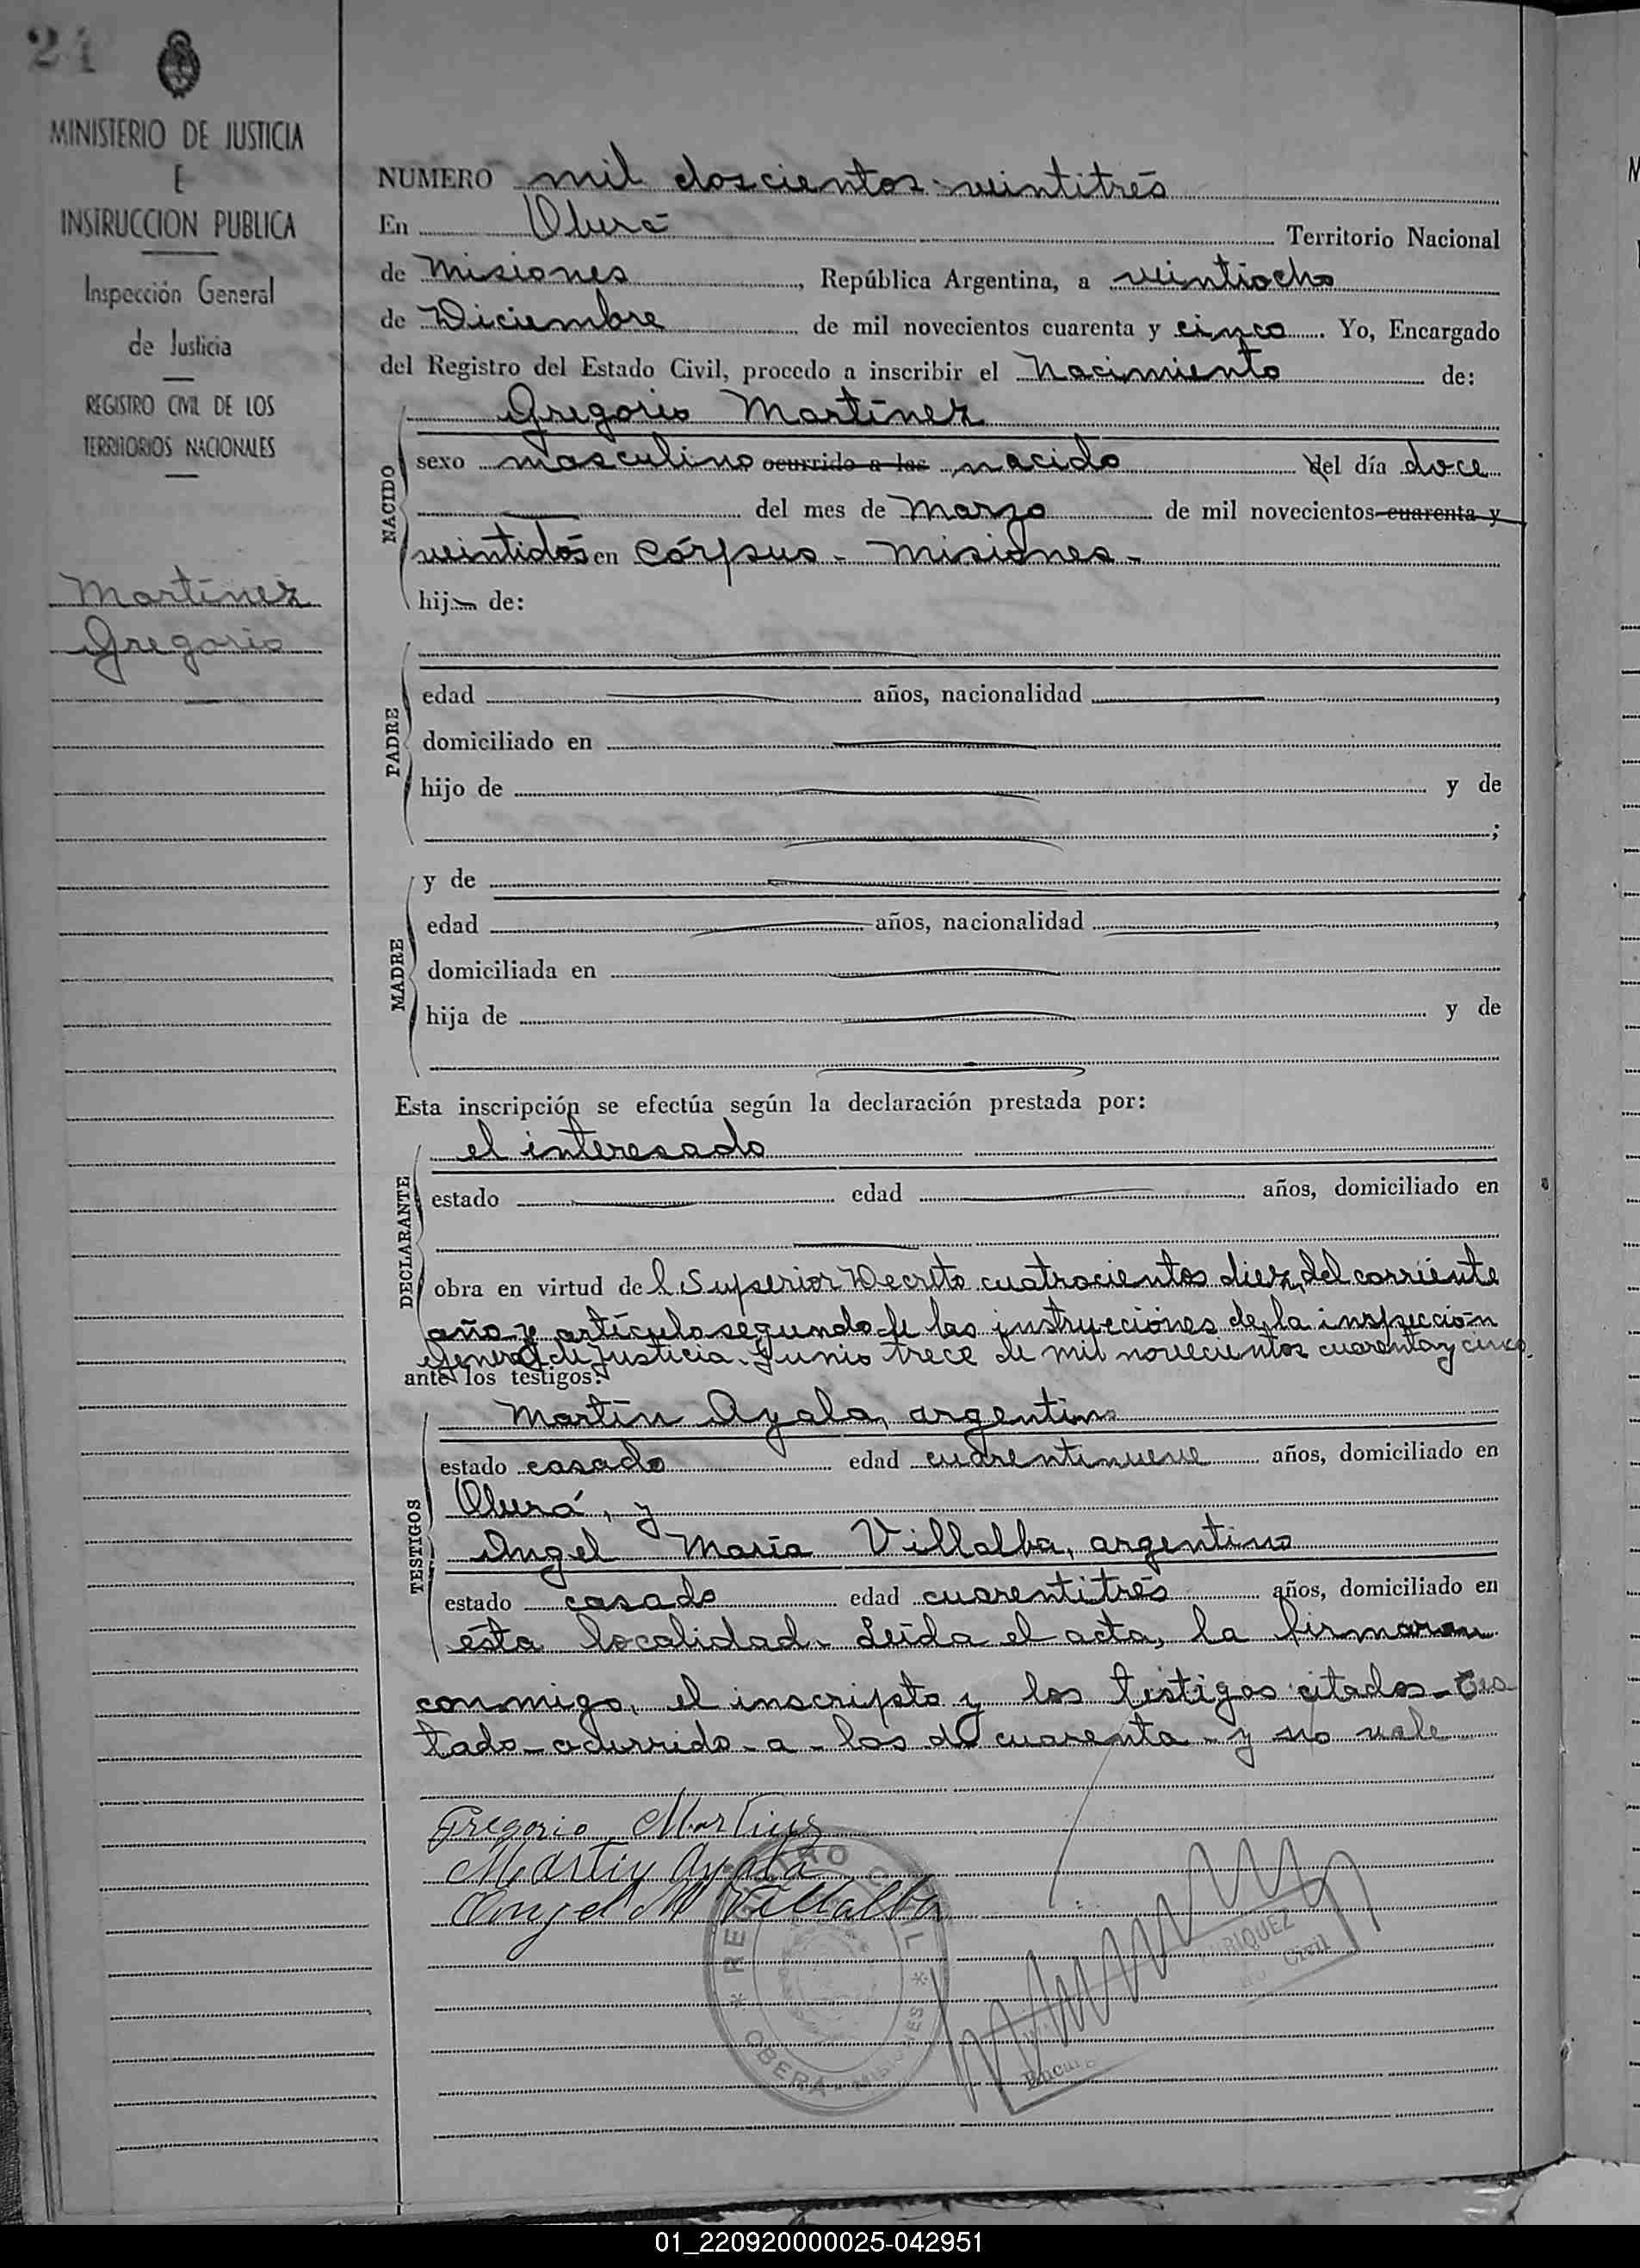 24
MINISTERIO DE JUSTICIA
E
INSTRUCCION PUBLICA
Inspección General
de Justicia
REGISTRO CIVIL DE LOS
TERRITORIOS NACIONALES
Martínez
Gregorio
NUMERO mil doscientos veintitrés
En Oberá Territorio Nacional
de Misiones, República Argentina, a veintiocho
de Diciembre de mil novecientos cuarenta y cinco. Yo, Encargado
del Registro del Estado Civil, procedo a inscribir el Nacimiento de:
NACIDO
Gregorio Martínez
sexo masculino ocurrido a las nacido del día doce
del mes de Marzo de mil novecientos cuarenta y
veintidós en Córpus - Misiones -
hij de:
PADRE
edad años, nacionalidad ,
domiciliado en
hijo de y de
;
MADRE
y de
edad años, nacionalidad ,
domiciliada en
hija de y de
Esta inscripción se efectúa según la declaración prestada por:
DECLARANTE
el interesado
estado edad años, domiciliado en
obra en virtud del Superior Decreto cuatrocientos diez, del corriente
año y artículo segundo de las instrucciones de la inspección
General de Justicia. Junio trece de mil novecientos cuarenta y cinco.
ante los testigos:
TESTIGOS
Martín Ayala, argentino
estado casado edad cuarentinueve años, domiciliado en
Oberá, y
Angel María Villalba, argentino
estado casado edad cuarentitrés años, domiciliado en
ésta localidad. Leída el acta, la firmaron
conmigo, el inscripto y los testigos citados - Tes
tado - ocurrido - a - las d cuarenta - y no vale
Gregorio Martinez
Martin Ayala
Angel M Villalba
REGISTRO CIVIL * OBERA - MISIONES *
RIQUEZ
Civil
01_220920000025-042951